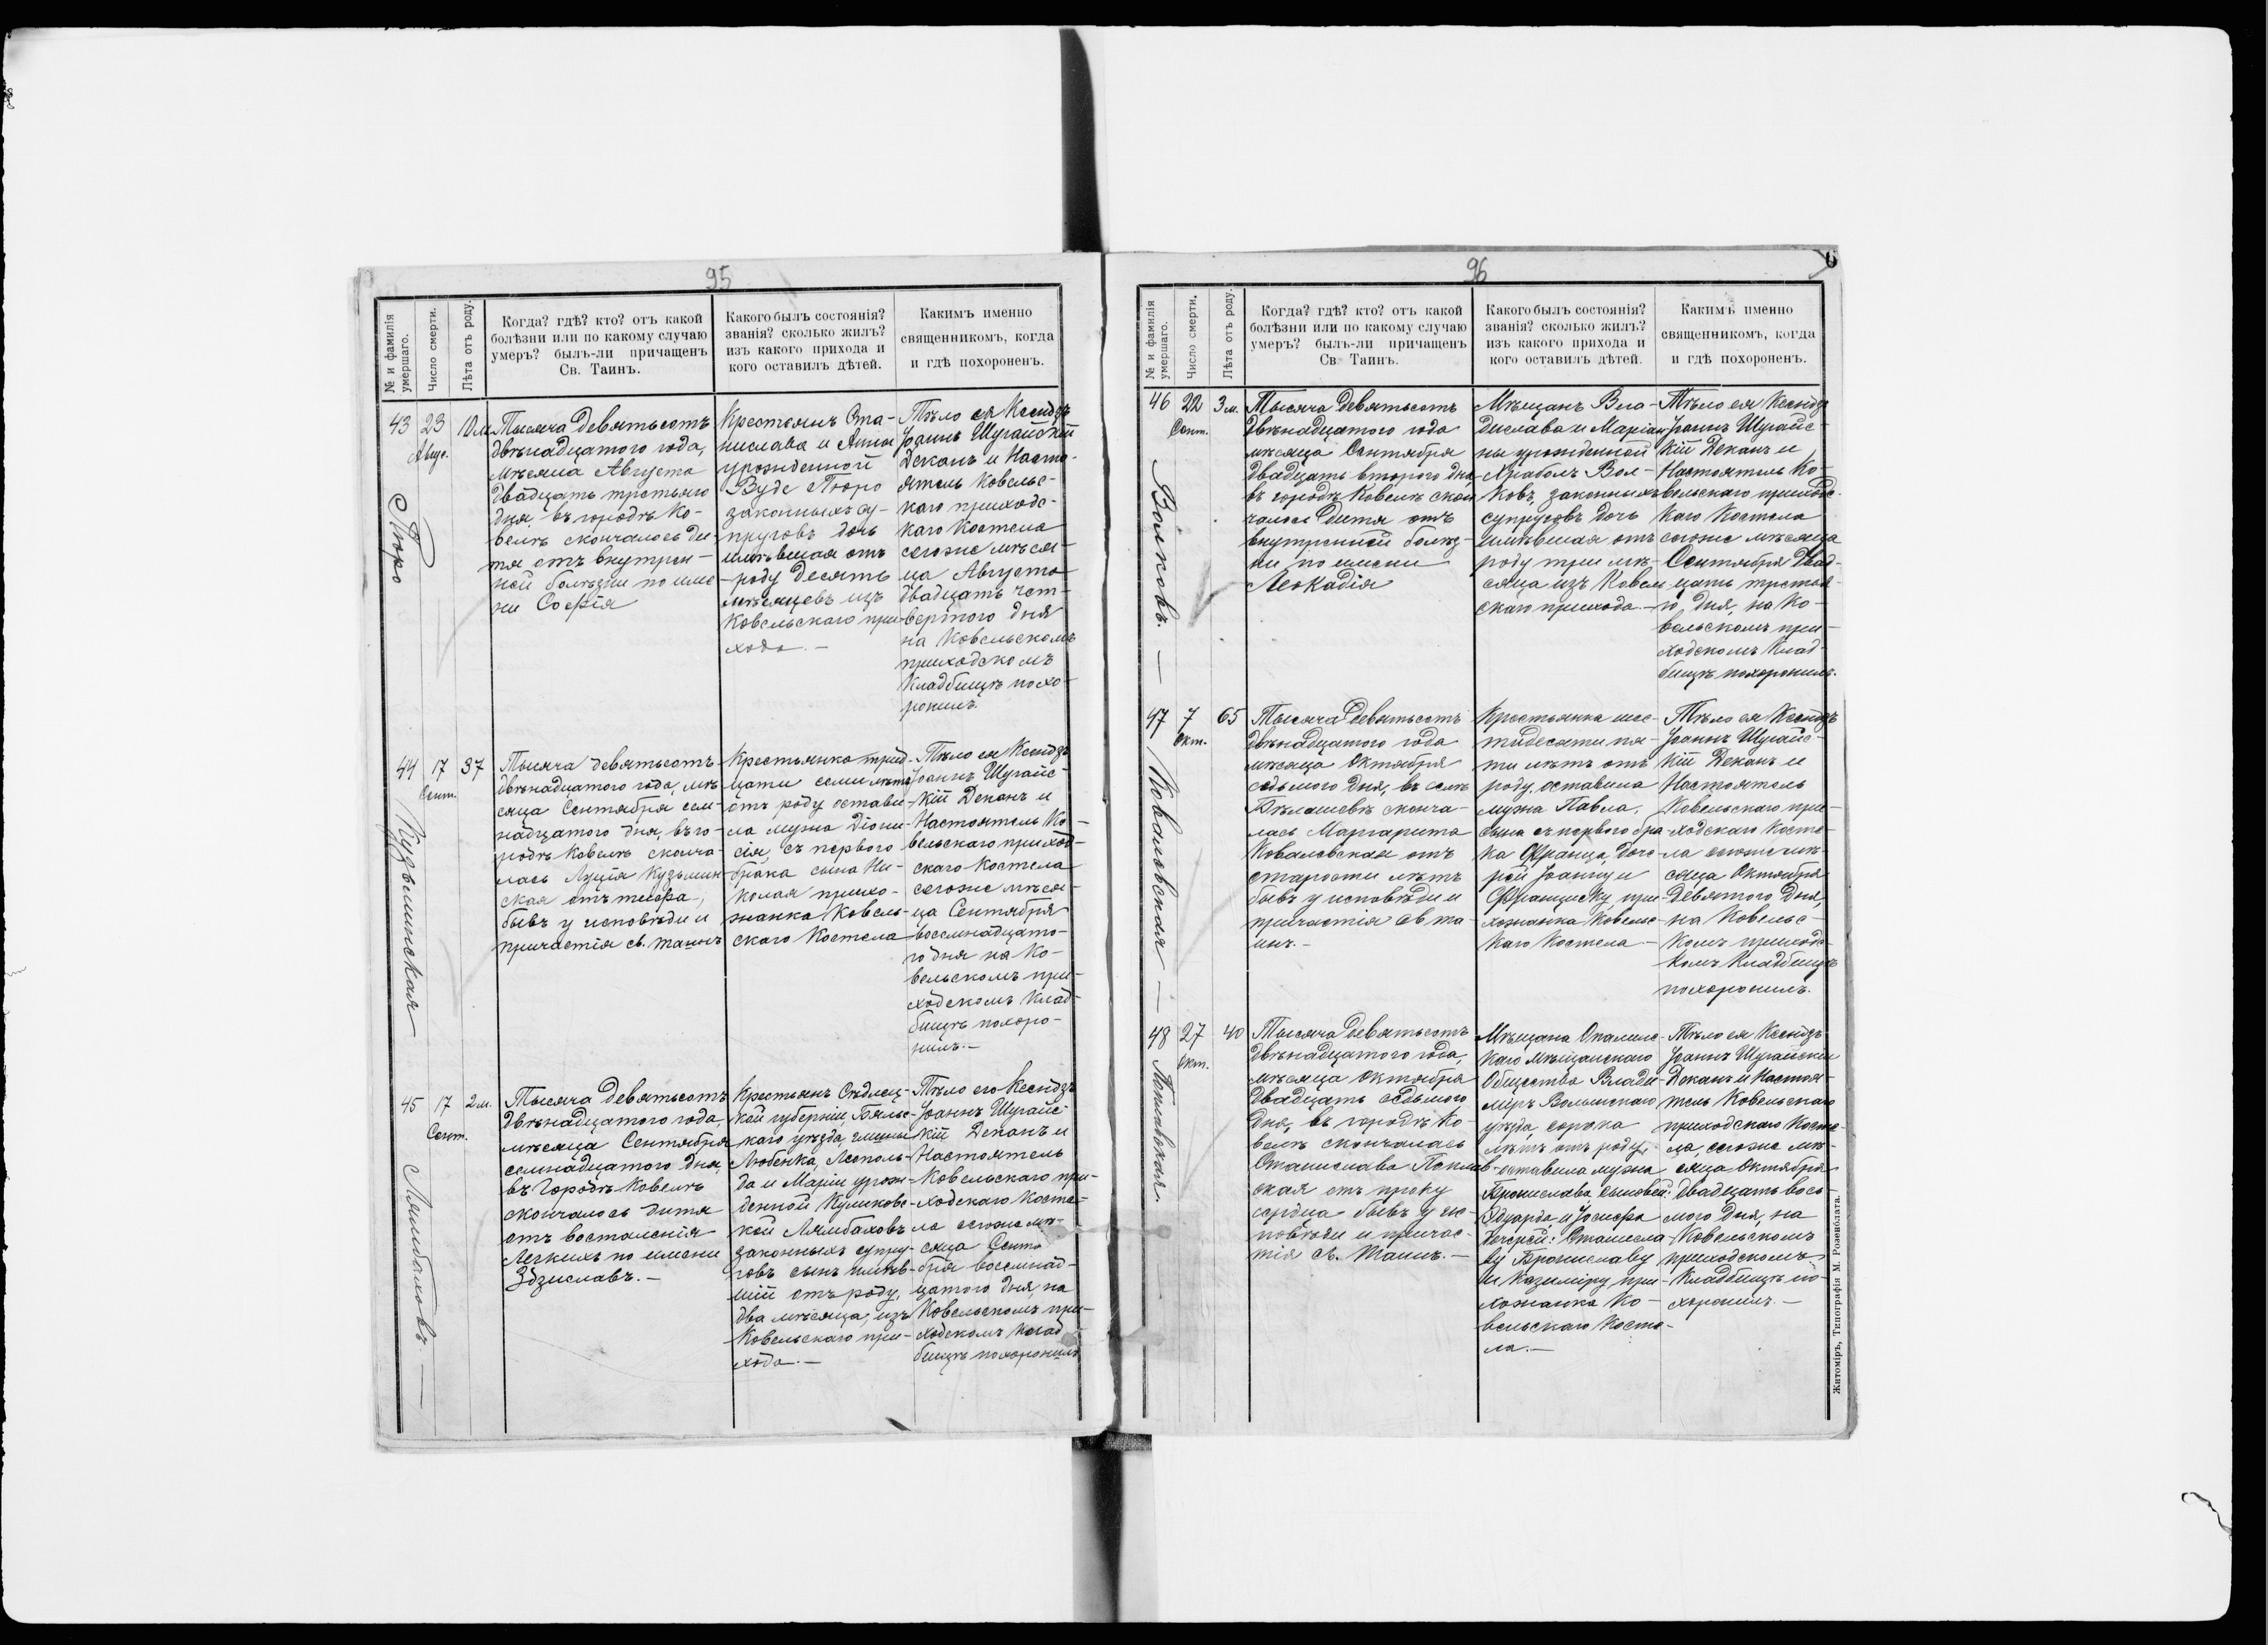 95
№ и фамилія
умершаго.
Число смерти.
Лѣта отъ роду.
Когда? гдѣ? кто? отъ какой
болѣзни или по какому случаю
умеръ? былъ-ли причащенъ
Св. Таинъ.
Какого былъ состоянія?
званія? сколько жилъ?
изъ какого прихода и
кого оставилъ дѣтей.
Какимъ именно
священникомъ, когда
и гдѣ похороненъ.
43
Тюро
23
Авгус.
10 м.
Тысяча девятьсотъ
двѣнадцатого года,
мѣсяца Августа
двадцать третьяго
дня, въ городѣ Ко-
велѣ скончалось ди-
тя отъ внутрен-
ней болѣзни по име
ни Софія
Крестьянъ Ста-
нислава и Анны
урожденной
Вуде Тюро
законныхъ су-
пруговъ дочь
имѣвшая отъ
роду десять
мѣсяцевъ изъ
Ковельскаго при-
хода. —
Тѣло ея Ксендзъ
Іоаннъ Шугайскій
Деканъ и Насто-
ятель Ковельс-
каго приходс-
каго Костела
сегоже мѣся-
ца Августа
двадцать чет-
вертого дня
на Ковельскомъ
приходскомъ
Кладбищѣ похо-
ронилъ.
44
Кузьминская
17
Сент.
37
Тысяча девятьсотъ
двѣнадцатого года, мѣ
сяца Сентября сем-
надцатого дня, въ го-
родѣ Ковелѣ сконча-
лась Луція Кузьмин
ская отъ тифа,
бывъ у исповѣди и
причастія св. таинъ
Крестьянка трид
цати семи лѣтъ
отъ роду остави-
ла мужа Діони-
сія, съ первого
брака сына Ни-
колая прихо-
жанка Ковель-
скаго Костела
Тѣло ея Ксендзъ
Іоаннъ Шугайс-
кій Деканъ и
Настоятель Ко-
вельскаго приход-
скаго Костела
сегоже мѣся-
ца Сентября
восемнадцато-
го дня на Ко-
вельскомъ при-
ходскомъ клад-
бищѣ похоро-
нилъ. —
45
Лямбаховъ. —
17
Сент.
2 м.
Тысяча девятьсотъ
двѣнадцатого года,
мѣсяца Сентября
семнадцатого дня,
въ Городѣ Ковелѣ
скончалось дитя
отъ воспаленія
Легкихъ по имени
Здзиславъ. —
Крестьянъ Сѣдлец-
кой губерніи, Бяльс-
каго уѣзда, гмины
Любенка, Леополь-
да и Маріи урож-
денной Куликовс-
кой Лямбаховъ
законныхъ супру-
говъ сынъ имѣв-
шій отъ роду,
два мѣсяца, изъ
Ковельскаго при-
хода. —
Тѣло его Ксендзъ
Іоаннъ Шугайс-
кій Деканъ и
Настоятель
Ковельскаго при-
ходскаго Косте-
ла сегоже мѣ-
сяца Сентя
бря восемнад-
цатого дня, на
Ковельскомъ при-
ходскомъ клад
бищѣ похоронилъ
96
6
№ и фамилія
умершаго.
Число смерти.
Лѣта отъ роду.
Когда? гдѣ? кто? отъ какой
болѣзни или по какому случаю
умеръ? былъ-ли причащенъ
Св Таинъ.
Какого былъ состоянія?
званія? сколько жилъ?
изъ какого прихода и
кого оставилъ дѣтей.
Какимъ именно
священникомъ, когда
и гдѣ похороненъ.
46
Волковъ. —
22
Сент.
3 м.
Тысяча девятьсотъ
двѣнадцатого года
мѣсяца Сентября
двадцать второго дня,
въ городѣ Ковелѣ скон
чалось дитя отъ
внутренней болѣз-
ни по имени
Леокадія
Мѣщанъ Вла-
дислава и Маріан
ны урожденной
Храболъ Вол-
ковъ, законныхъ
супруговъ дочь
имѣвшая отъ
роду три мѣ-
сяца изъ Ковель
скаго прихода. —
Тѣло ея Ксендз
Іоаннъ Шугайс-
кій Деканъ и
Настоятель Ко-
вельскаго приходс-
каго Костела
сегоже мѣсяца
Сентября двад-
цать третья-
го дня, на Ко-
вельскомъ при-
ходскомъ Клад-
бищѣ похоронилъ.
47
Ковалевская —
7
Окт.
65
Тысяча девятьсотъ
двѣнадцатого года
мѣсяца Октября
седьмого дня, въ селѣ
Бѣлашевѣ сконча-
лась Маргарита
Ковалевская отъ
старости лѣтъ
бывъ у исповѣди и
причастія св. та-
инъ. —
Крестьянка шес-
тидесяти пя-
ти лѣтъ отъ
роду, оставила
мужа Павла,
сына съ первого бра-
ка Франца, доче-
рей Іоанну и
Франциску, при-
хожанка Ковельс-
каго Костела —
Тѣло ея Ксендзъ
Іоаннъ Шугайс-
кій Деканъ и
Настоятель
Ковельскаго при-
ходскаго Косте-
ла сегоже мѣ-
сяца Октября
девятого дня,
на Ковельс-
комъ приходс-
комъ Кладбищѣ
похоронилъ.
48
27
Окт.
40
Тысяча девятьсотъ
двѣнадцатого года,
мѣсяца Октября
двадцать седьмого
дня, въ городѣ Ко-
велѣ скончалась
Станислава
ская отъ
сердца бывъ у ис-
повѣди и причас-
тія св. Таинъ. —
Мѣщанка
каго Мѣщанскаго
Общества Влади-
міръ Волынскаго
уѣзда, сорока
лѣтъ отъ роду,
оставила мужа
Бронислава, сыновей:
Эдуарда и Іосифа
дочерей: Станисла-
ву Брониславу
и Казиміру при-
хожанка Ко-
вельскаго Косте-
ла. —
Тѣло ея Ксендзъ
Іоаннъ Шугайскій
Деканъ и Настоя-
тель Ковельскаго
приходскаго Косте-
ла, сегоже мѣ-
сяца Октября
двадцать вось-
мого дня, на
Ковельскомъ
приходскомъ
Кладбищѣ по-
хоронилъ. —
Житоміръ, Типографія М. Розенблата.